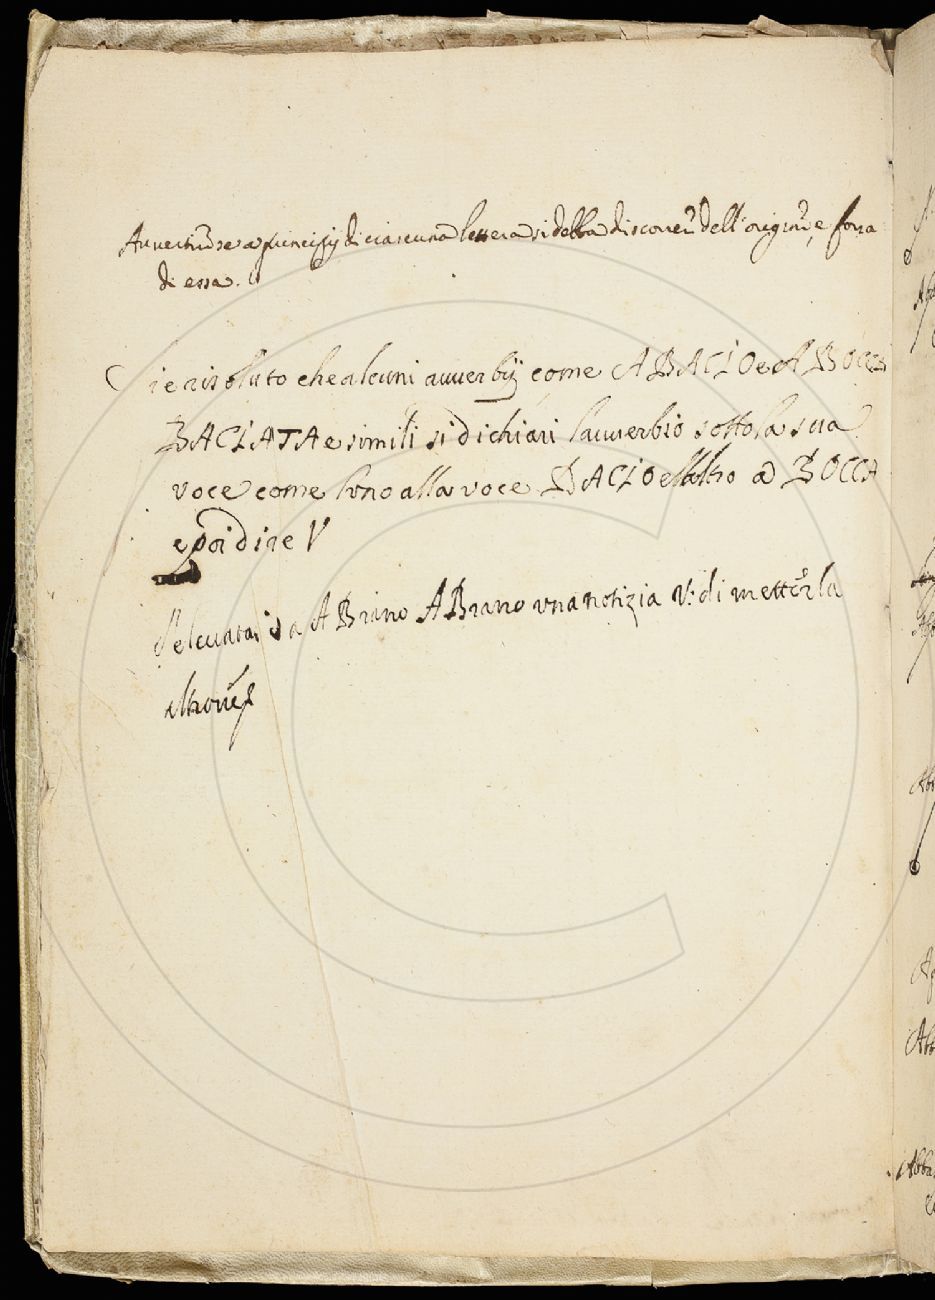 Auuertire se a principij di ciascuna lettera si debba discorrer dell'origine, e forza
di essa.
Si e risoluto che alcuni auuerbij come A BACIO e A BOCCA
BACIATA e simili si dichiari lauuerbio sotto la sua
voce come luno alla voce BACIO e laltro a BOCCA
e poi dire V
leuata da A Brano A Brano una notizia V: di metterla
altroue